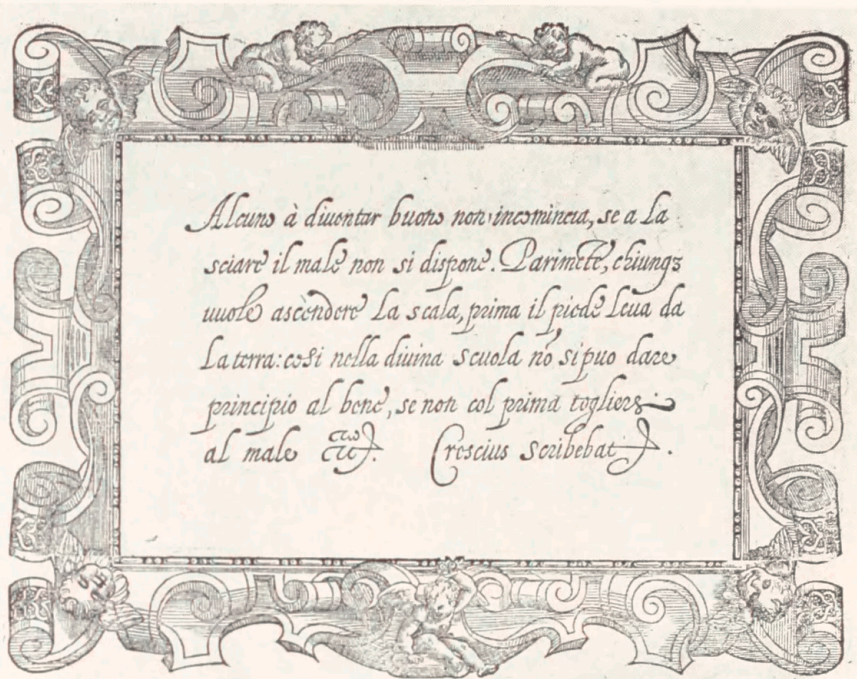 Alcuno à diuentar buono non incomincia, se a la
sciare il male non si dispone. Parimēte, chiunqꝫ
uuole ascendere la scala, prima il piede leua da
la terra: cosi nella diuina scuola nō si puo dare
principio al bene, se non col prima togliers
al male &c. Crescius scribebat.